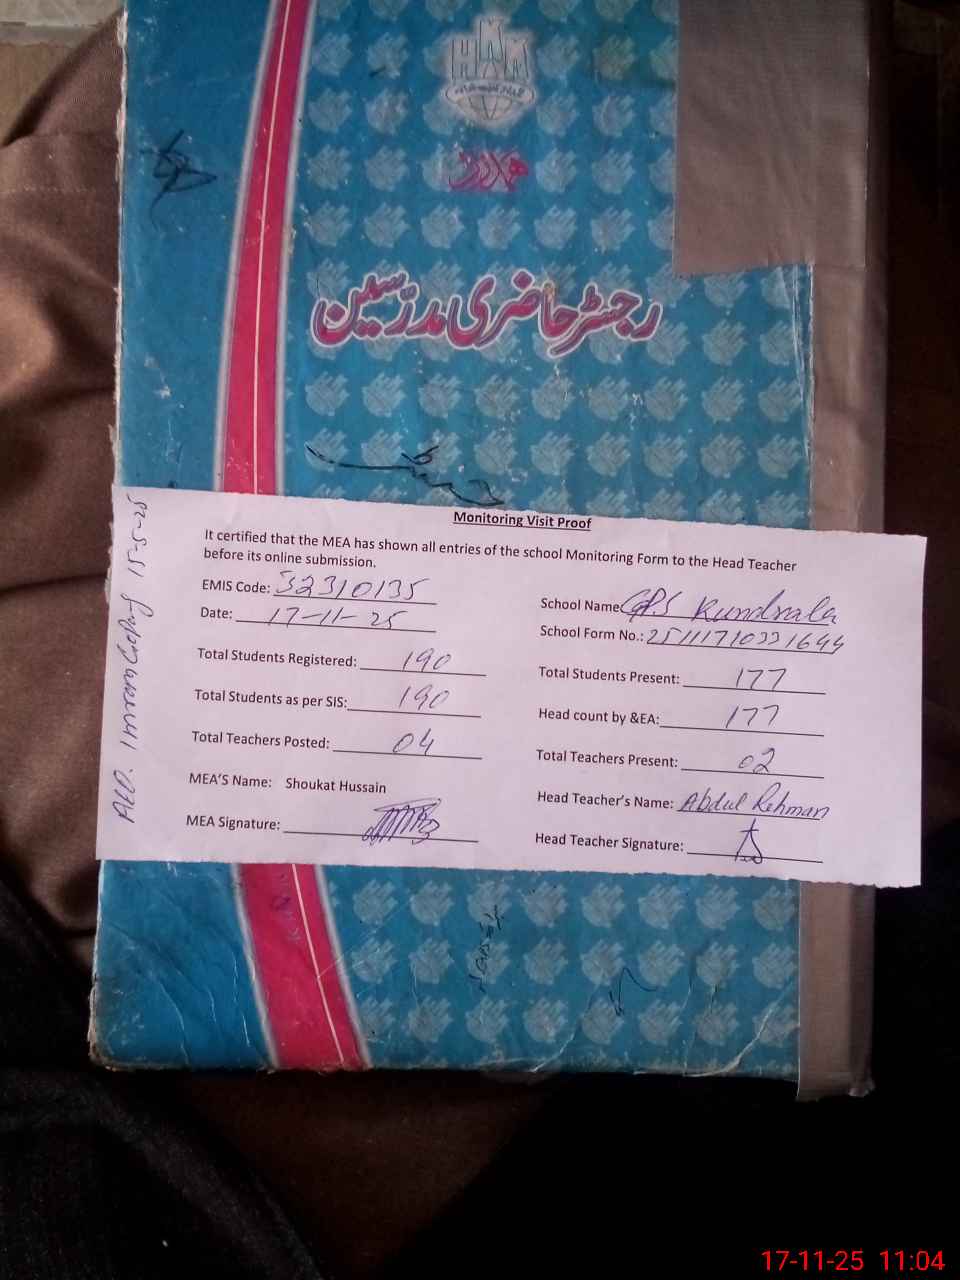 ہمدرد
رجسٹر حاضری مدرّسین
Monitoring Visit Proof
It certified that the MEA has shown all entries of the school Monitoring Form to the Head Teacher
before its online submission.
EMIS Code: 32310135
School Name GPS Kundrala
Date: 17-11-25
School Form No.: 25111710331644
Total Students Registered: 190
Total Students Present: 177
Total Students as per SIS: 190
Head count by &EA: 177
Total Teachers Posted: 04
Total Teachers Present: 02
MEA'S Name: Shoukat Hussain
Head Teacher's Name: Abdul Rehman
MEA Signature:
Head Teacher Signature:
AEO. Imran 15-5-25
17-11-25 11:04